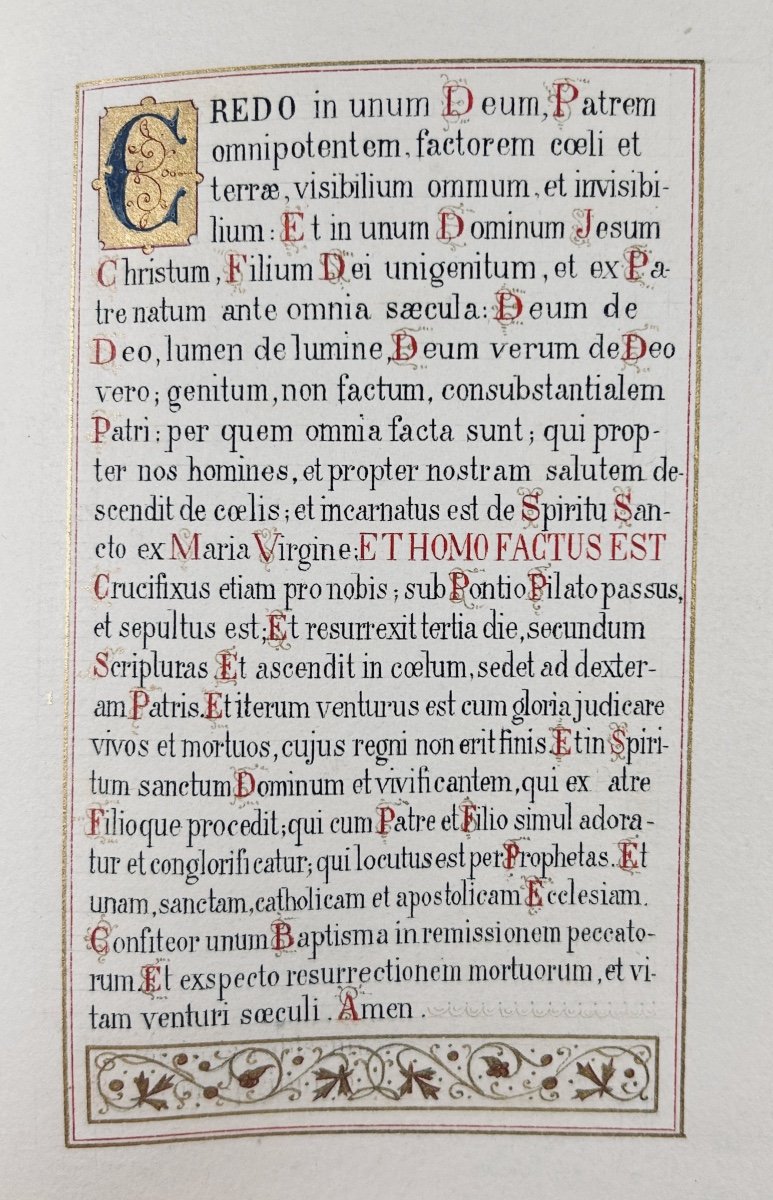 CREDO in unum Deum, Patrem
omnipotentem, factorem cœli et
terræ, visibilium ommum, et invisibi-
lium: Et in unum Dominum Jesum
Christum, Filium Dei unigenitum, et ex Pa-
tre natum ante omnia sæcula: Deum de
Deo, lumen de lumine, Deum verum de Deo
vero; genitum, non factum, consubstantialem
Patri: per quem omnia facta sunt; qui prop-
ter nos homines, et propter nostram salutem de-
scendit de cœlis; et incarnatus est de Spiritu San-
cto ex Maria Virgine; ET HOMO FACTUS EST
Crucifixus etiam pro nobis; sub Pontio Pilato passus,
et sepultus est; Et resurrexit tertia die, secundum
Scripturas Et ascendit in cœlum, sedet ad dexter-
am Patris. Et iterum venturus est cum gloria judicare
vivos et mortuos, cujus regni non erit finis. Et in Spiri-
tum sanctum Dominum et vivificantem, qui ex atre
Filioque procedit; qui cum Patre et Filio simul adora-
tur et conglorificatur; qui locutus est per Prophetas. Et
unam, sanctam, catholicam et apostolicam Ecclesiam.
Confiteor unum Baptisma in remissionem peccato-
rum. Et exspecto resurrectionem mortuorum, et vi-
tam venturi sœculi. Amen.